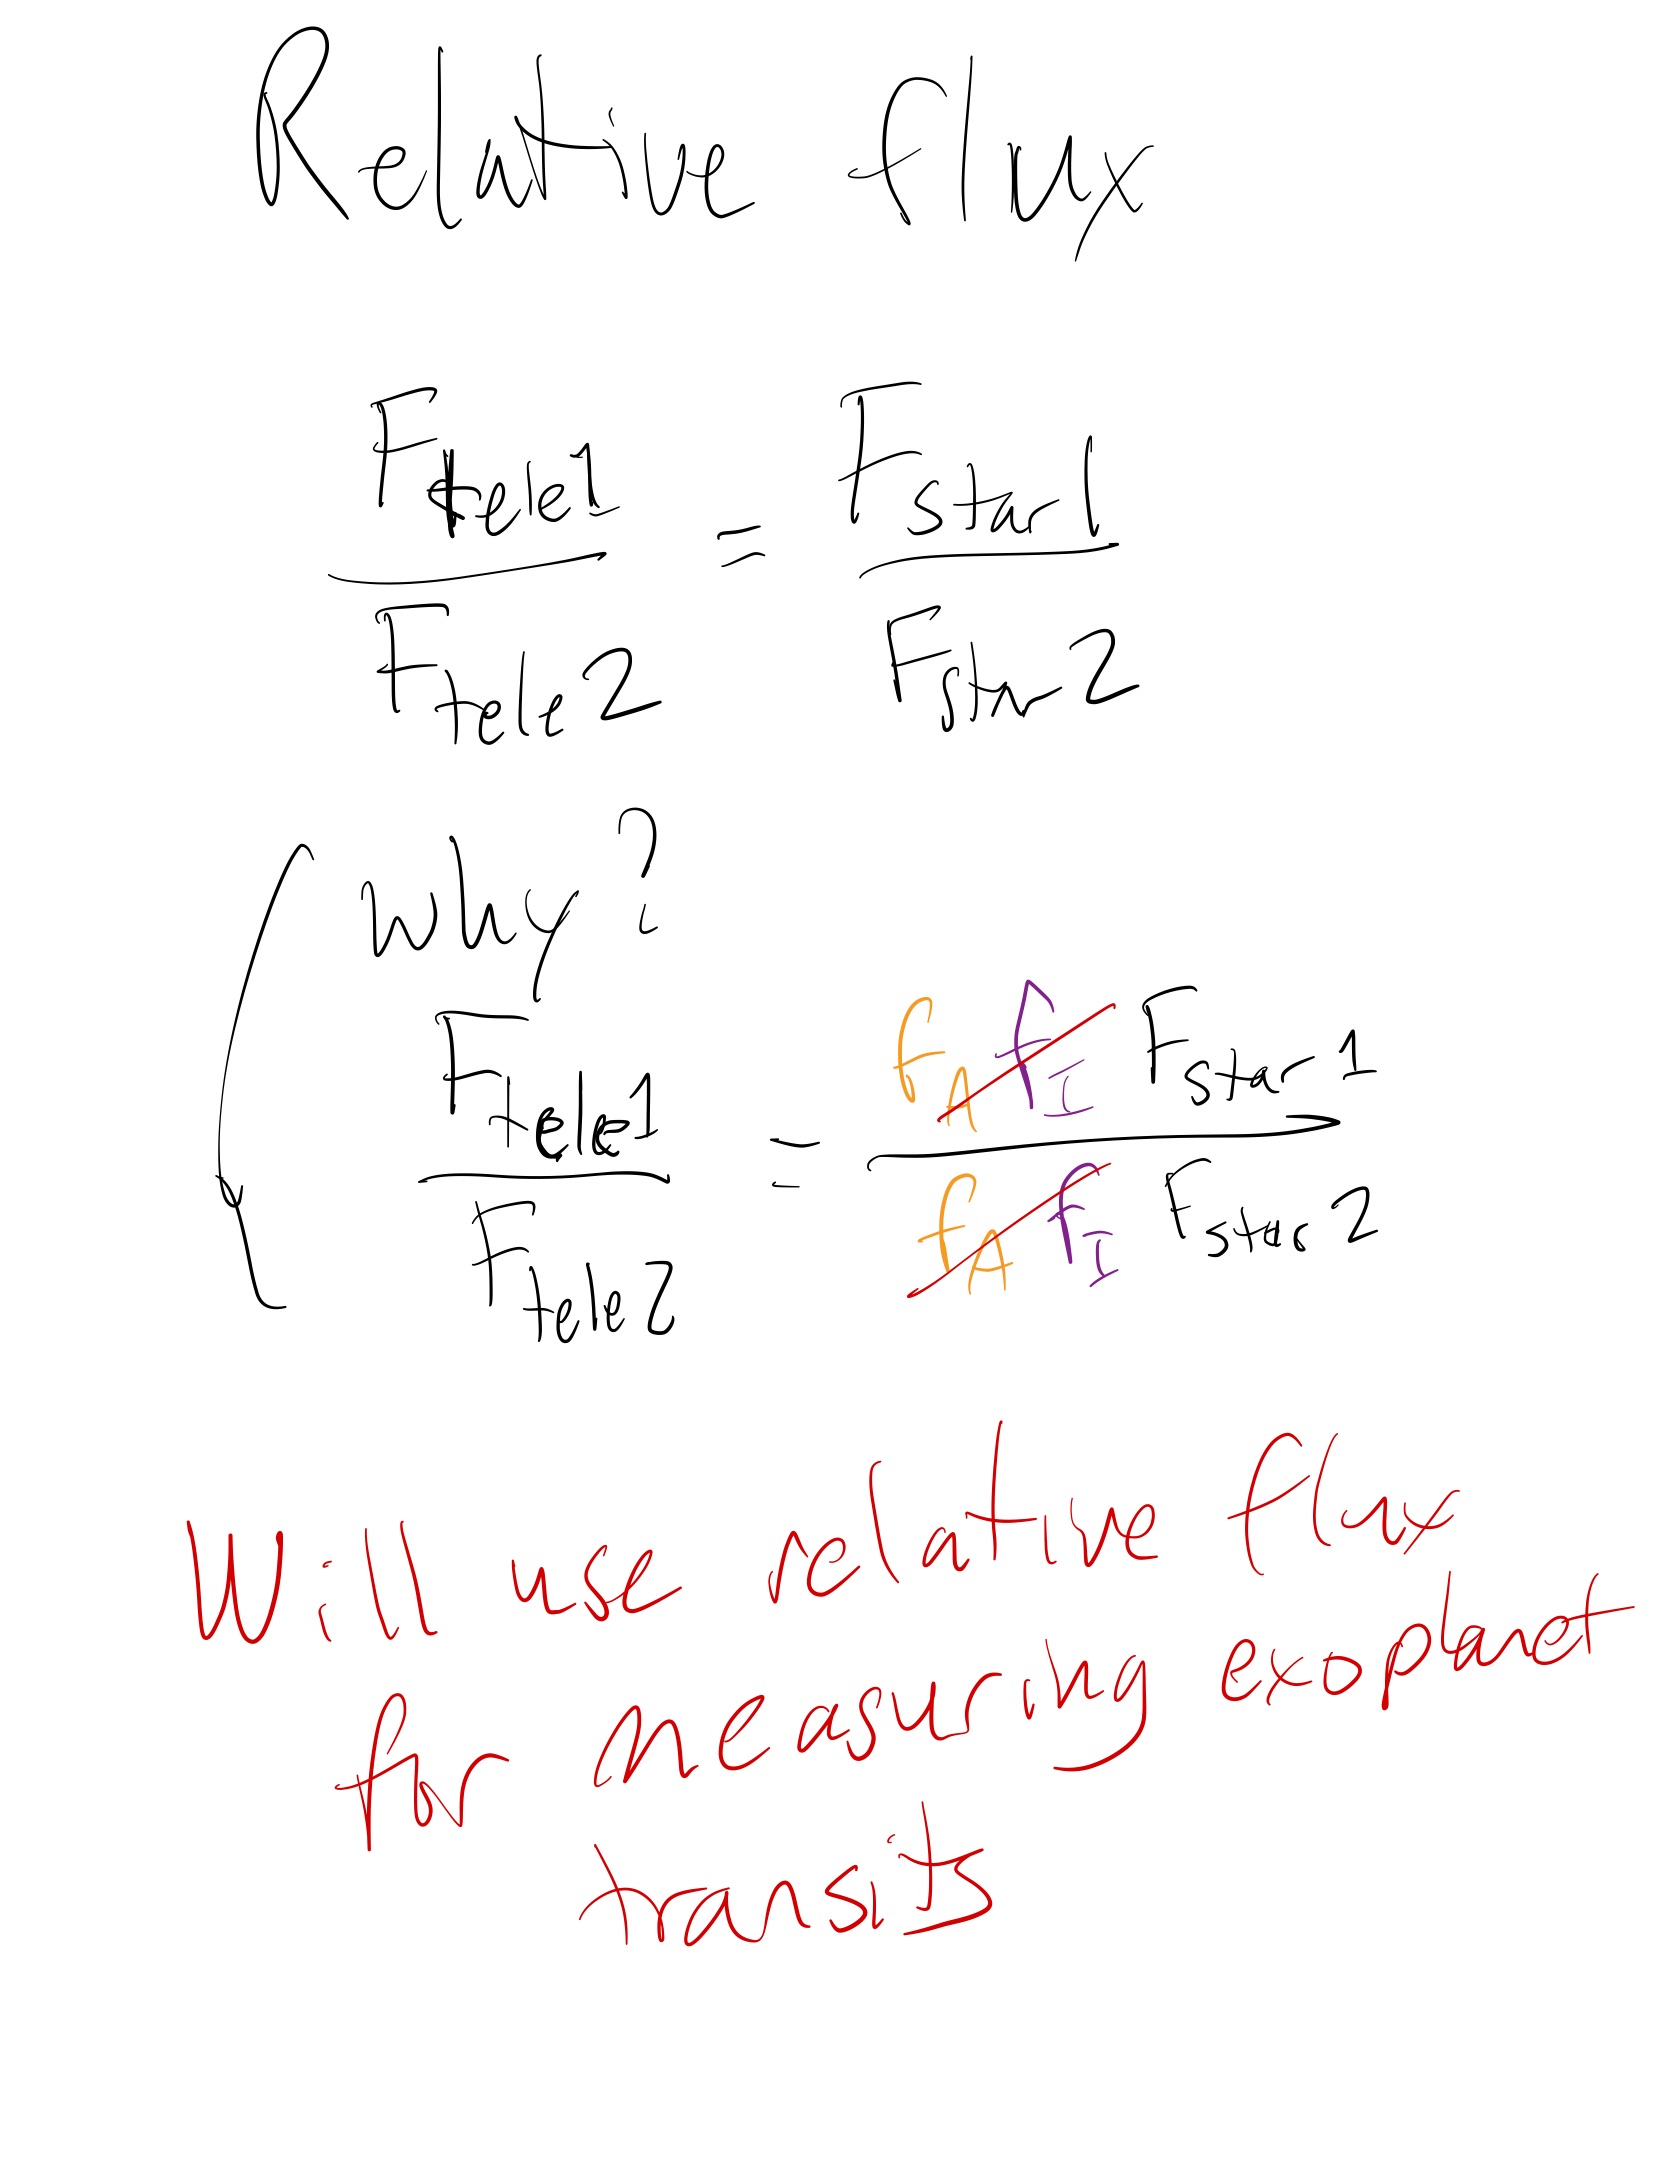 Relative flux
F_tele1 / F_tele2 = F_star1 / F_star2
Why?
F_tele1 / F_tele2 = f_A f_I F_star1 / f_A f_I F_star2
Will use relative flux
for measuring exoplanet
transits